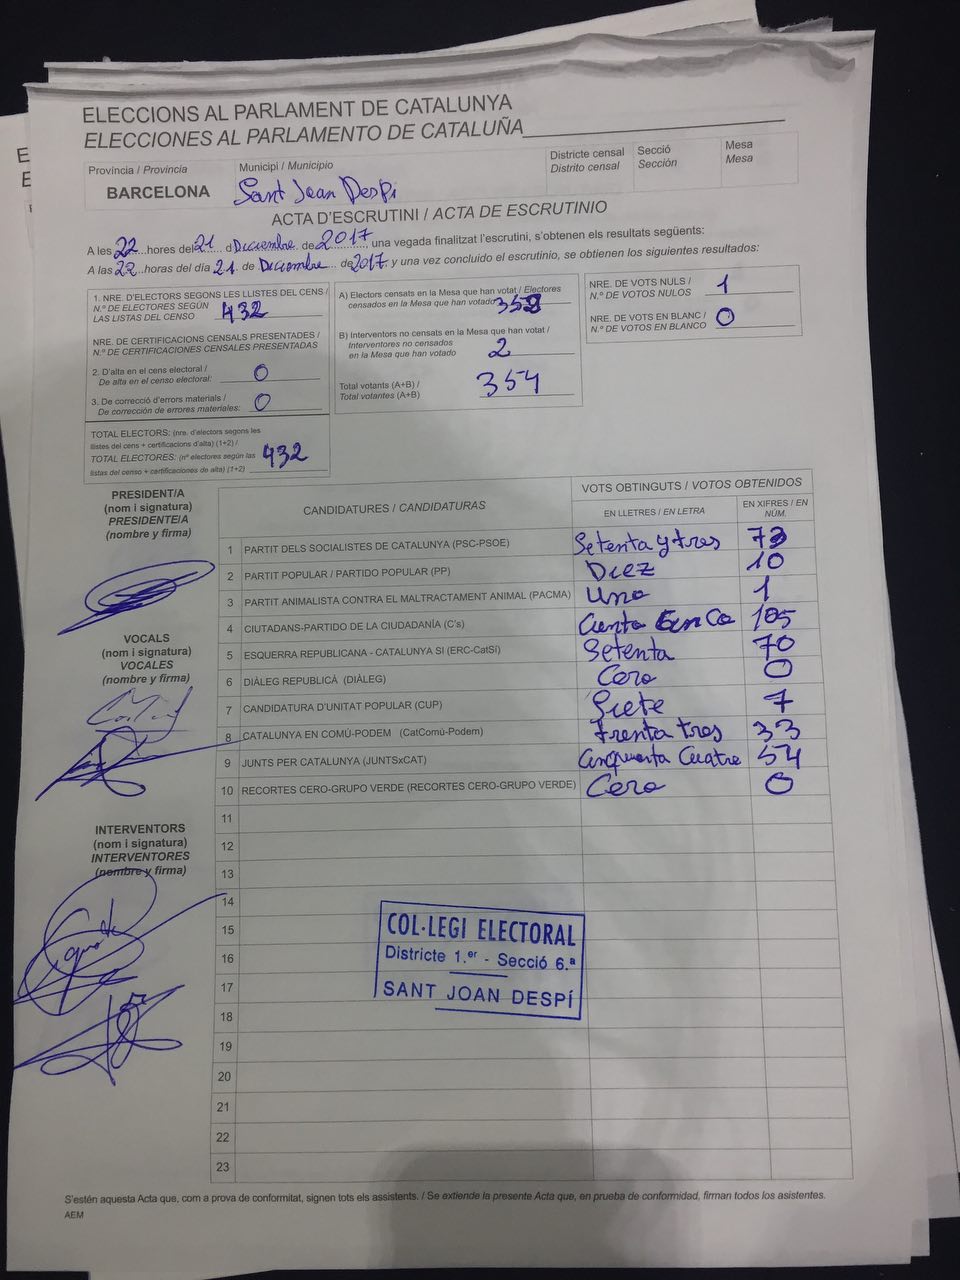 ELECCIONS AL PARLAMENT DE CATALUNYA
ELECCIONES AL PARLAMENTO DE CATALUÑA
Província / Provincia
BARCELONA
Municipi / Municipio
Sant Joan Despi
Districte censal
Distrito censal
Secció
Sección
Mesa
Mesa
ACTA D'ESCRUTINI / ACTA DE ESCRUTINIO
A les 22 hores del 21 d Diciembre de 2017, una vegada finalitzat l'escrutini, s'obtenen els resultats següents:
A las 22 horas del día 21 de Diciembre de 2017 y una vez concluido el escrutinio, se obtienen los siguientes resultados:
1. NRE. D'ELECTORS SEGONS LES LLISTES DEL CENS /
N.º DE ELECTORES SEGÚN
LAS LISTAS DEL CENSO
432
NRE. DE CERTIFICACIONS CENSALS PRESENTADES /
N.º DE CERTIFICACIONES CENSALES PRESENTADAS
2. D'alta en el cens electoral /
De alta en el censo electoral:
0
3. De correcció d'errors materials /
De corrección de errores materiales:
0
TOTAL ELECTORS: (nre. d'electors segons les
llistes del cens + certificacions d'alta) (1+2) /
TOTAL ELECTORES: (nº electores según las
listas del censo + certificaciones de alta) (1+2)
432
A) Electors censats en la Mesa que han votat / Electores
censados en la Mesa que han votado
352
B) Interventors no censats en la Mesa que han votat /
Interventores no censados
en la Mesa que han votado
2
Total votants (A+B) /
Total votantes (A+B)
354
NRE. DE VOTS NULS /
N.º DE VOTOS NULOS
1
NRE. DE VOTS EN BLANC /
N.º DE VOTOS EN BLANCO
0
PRESIDENT/A
(nom i signatura)
PRESIDENTE/A
(nombre y firma)
VOCALS
(nom i signatura)
VOCALES
(nombre y firma)
INTERVENTORS
(nom i signatura)
INTERVENTORES
(nombre y firma)
CANDIDATURES / CANDIDATURAS
VOTS OBTINGUTS / VOTOS OBTENIDOS
EN LLETRES / EN LETRA
EN XIFRES / EN NÚM.
1 PARTIT DELS SOCIALISTES DE CATALUNYA (PSC-PSOE) Setenta y tres 73
2 PARTIT POPULAR / PARTIDO POPULAR (PP) Diez 10
3 PARTIT ANIMALISTA CONTRA EL MALTRACTAMENT ANIMAL (PACMA) Uno 1
4 CIUTADANS-PARTIDO DE LA CIUDADANÍA (C's) 105
5 ESQUERRA REPUBLICANA - CATALUNYA SI (ERC-CatSí) Setenta 70
6 DIÀLEG REPUBLICÀ (DIÀLEG) Cero 0
7 CANDIDATURA D'UNITAT POPULAR (CUP) Siete 7
8 CATALUNYA EN COMÚ-PODEM (CatComú-Podem) trenta tres 33
9 JUNTS PER CATALUNYA (JUNTSxCAT) Cinquenta Cuatre 54
10 RECORTES CERO-GRUPO VERDE (RECORTES CERO-GRUPO VERDE) Cero 0
11
12
13
14
15
16
17
18
19
20
21
22
23
COL·LEGI ELECTORAL
Districte 1.er - Secció 6.ª
SANT JOAN DESPÍ
S'estén aquesta Acta que, com a prova de conformitat, signen tots els assistents. / Se extiende la presente Acta que, en prueba de conformidad, firman todos los asistentes.
AEM